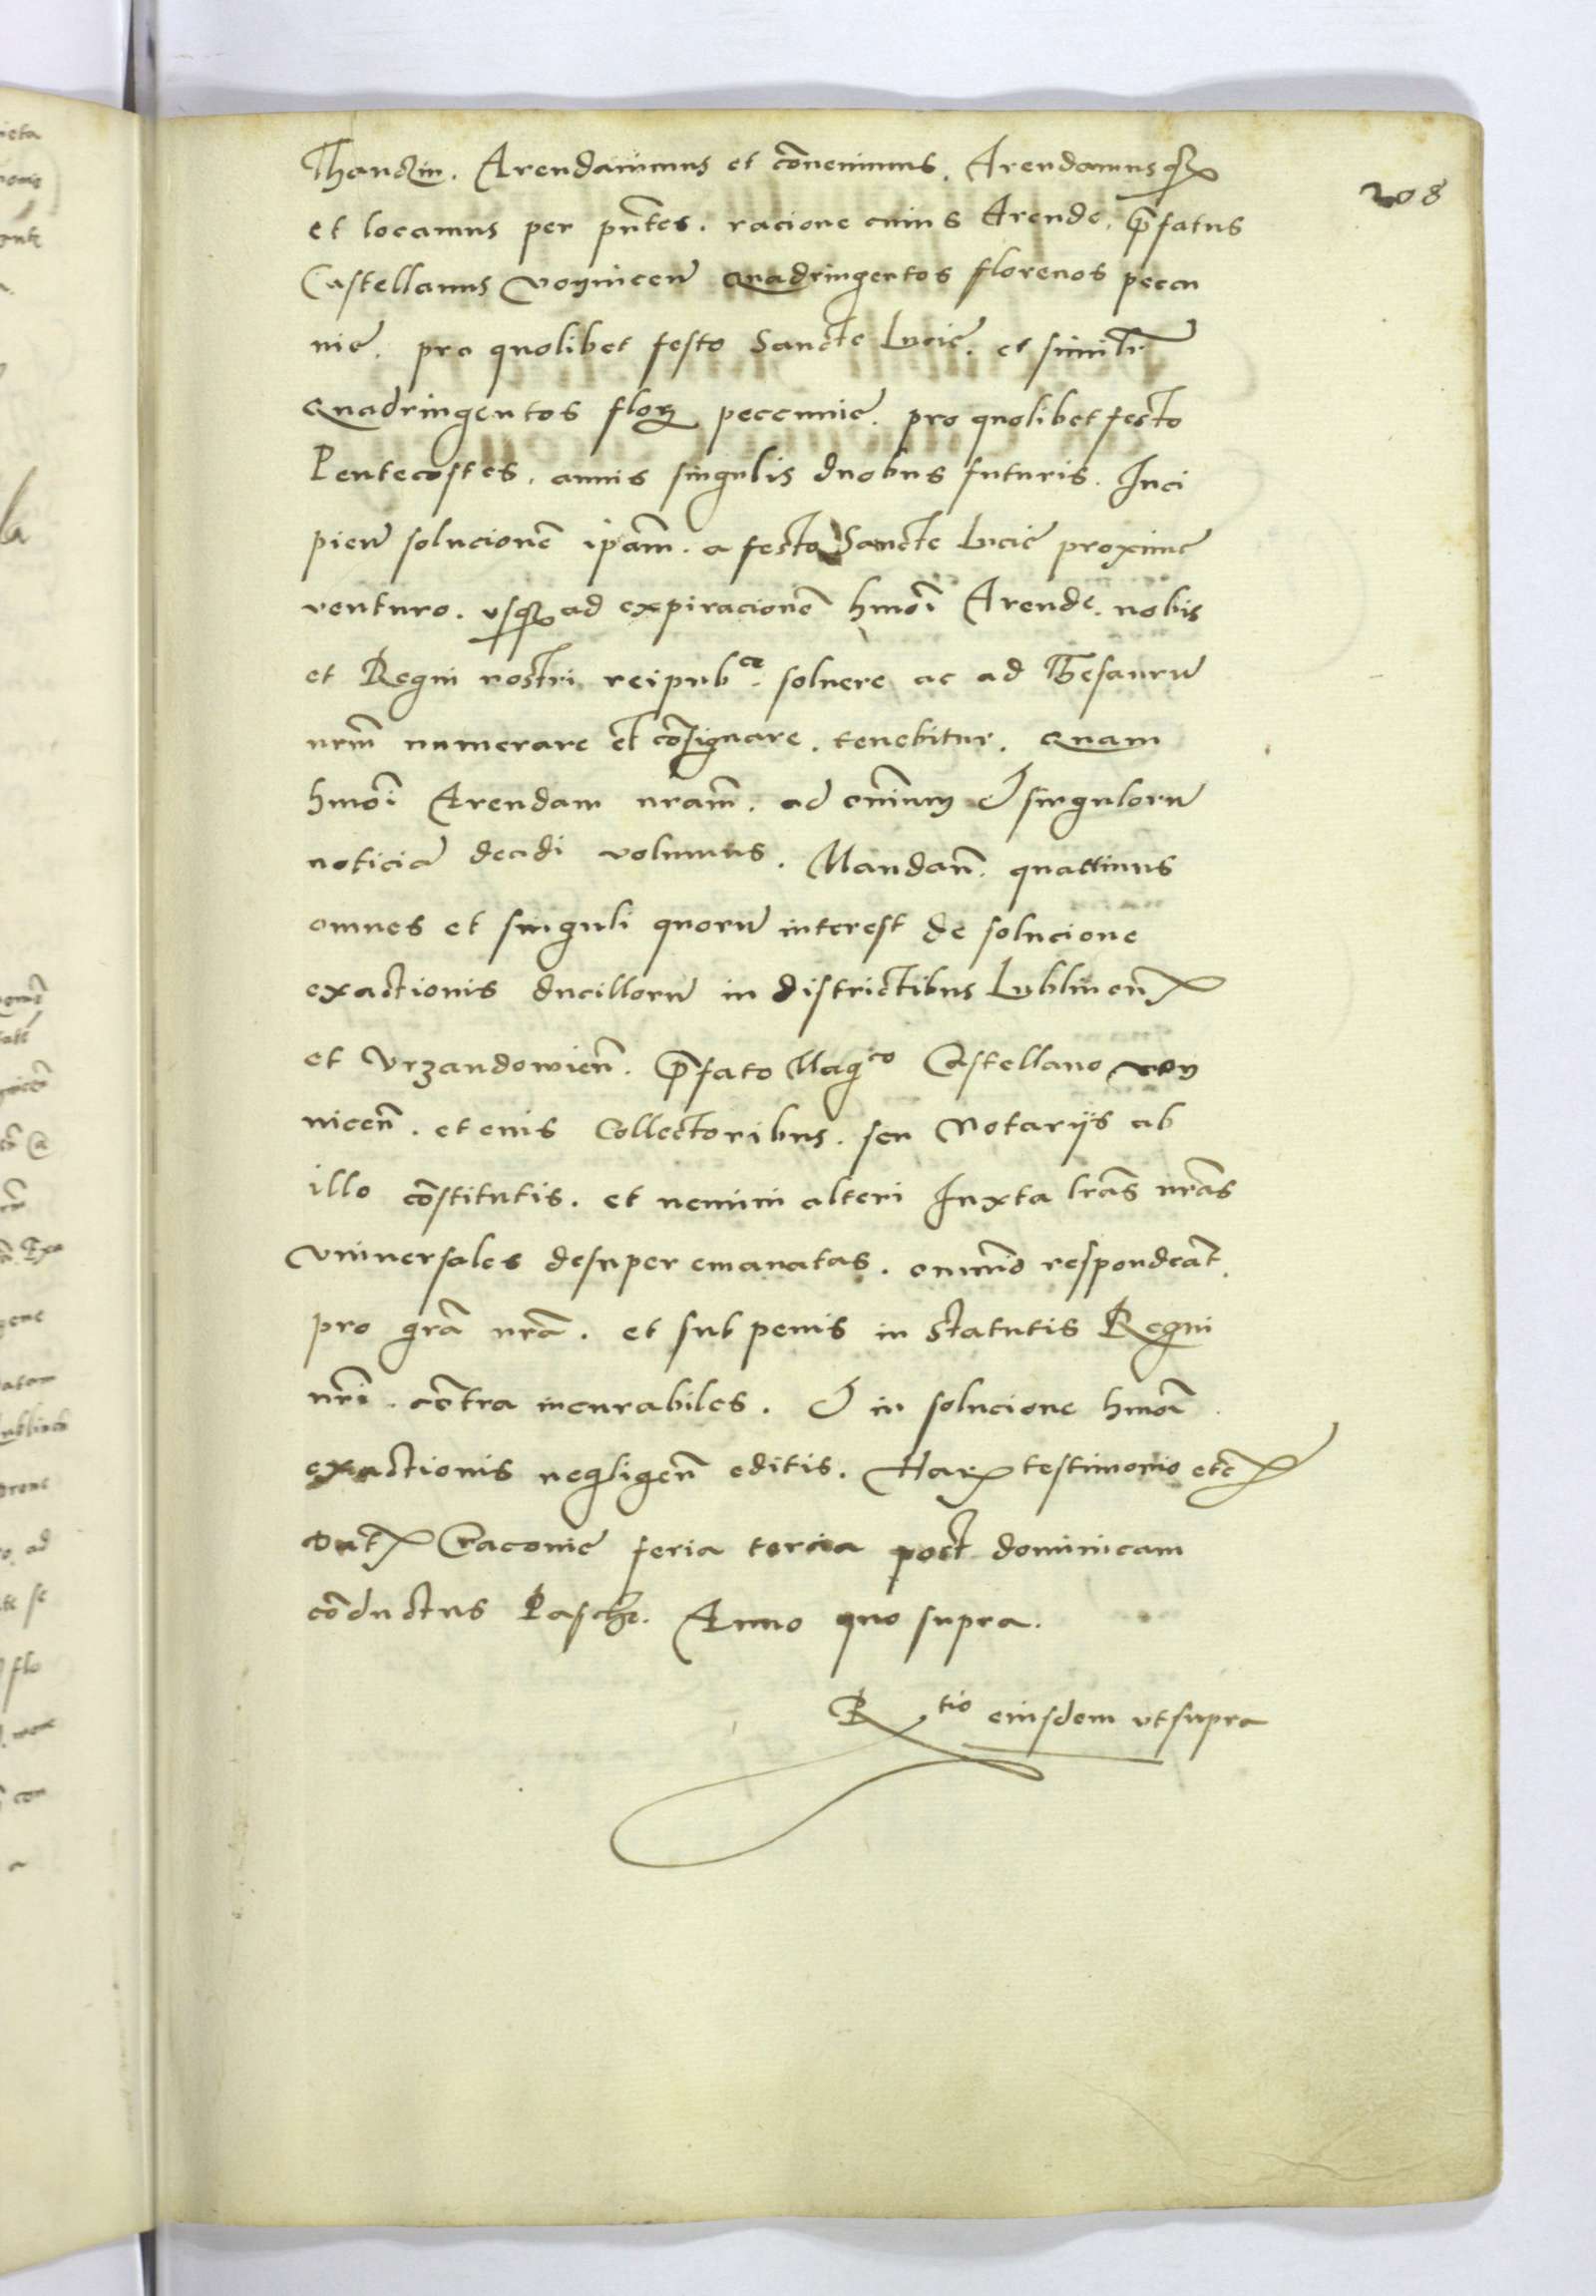 208
Thanczin. Arendavimus et cōvenimus. Arendamusqʒ
et locamus per pn̄tes. racione cuius Arende, p̄fatus
Castellanus voynicen̄ quadringentos florenos pecu
nie. pro quolibet festo Sancte Lucie. et similit̄
quadringentos flor pecunie. pro quolibet festo
Pentecostes. annis singulis duobus futuris. Inci
pien̄ solucionē ip̄am. a festo Sancte Lucie proxime
venturo. usqʒ ad expiracionē hmōi Arende. nobis
et Regni nostri reipubce. solvere ac ad Thesaurū
nr̄m numerare et cōsignare. tenebitur. quam
hmōi Arendam nr̄am. ad om̄ium & singulorū
noticiā deadi volumus. Mandan̄. quattinus
omnes et singuli quorū interest de solucione
exactionis ducillorū in districtibus Lublinen̄
et Vrzandowien̄. p̄fato Maḡco Castellano voy
nicen̄. et eius Collectoribus. seu Notarijs ab
illo cōstitutis. et nemini alteri Iuxta lr̄as nr̄as
vniuersales desuper emanatas. omnīo respondeāt.
pro gr̄a nr̄a. et sub penis in statutis Regni
nr̄i. cōtra incurabiles. & in solucione hmōi
exactionis negligen̄ editis. Harʒ testimonio etc̄
Dat̄ Cracovie feria tercia post dominicam
cōductus Pasche. Anno quo supra.
Rtio eiusdem vt supra